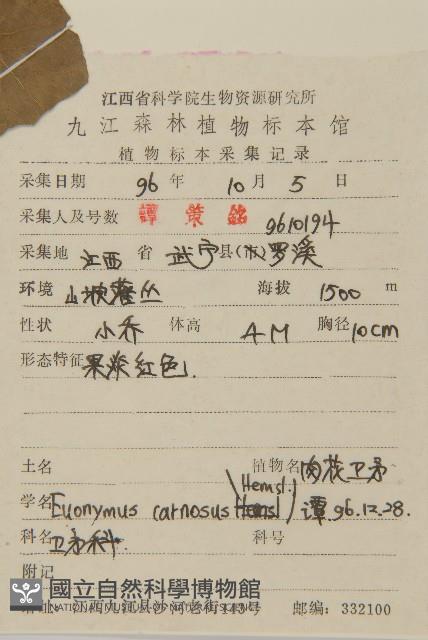 江西省科学院生物资源研究所
九江森林植物标本馆
植物标本采集记录
采集日期 96 年 10 月 5 日
采集人及号数 譚策銘 9610194
采集地 江西 省 武宁 县(市) 罗溪
环境 山坡灌丛 海拔 1500 m
性状 小乔 体高 4M 胸径 10cm
形态特征 果淡红色.
土名 植物名 肉花卫矛
学名 Euonymus carnosus Hemsl. 谭.96.12.28.
科名 卫矛科. 科号
附记
國立自然科學博物館
NATIONAL MUSEUM OF NATURAL SCIENCE
江西九江县沙河老街113号 邮编：332100